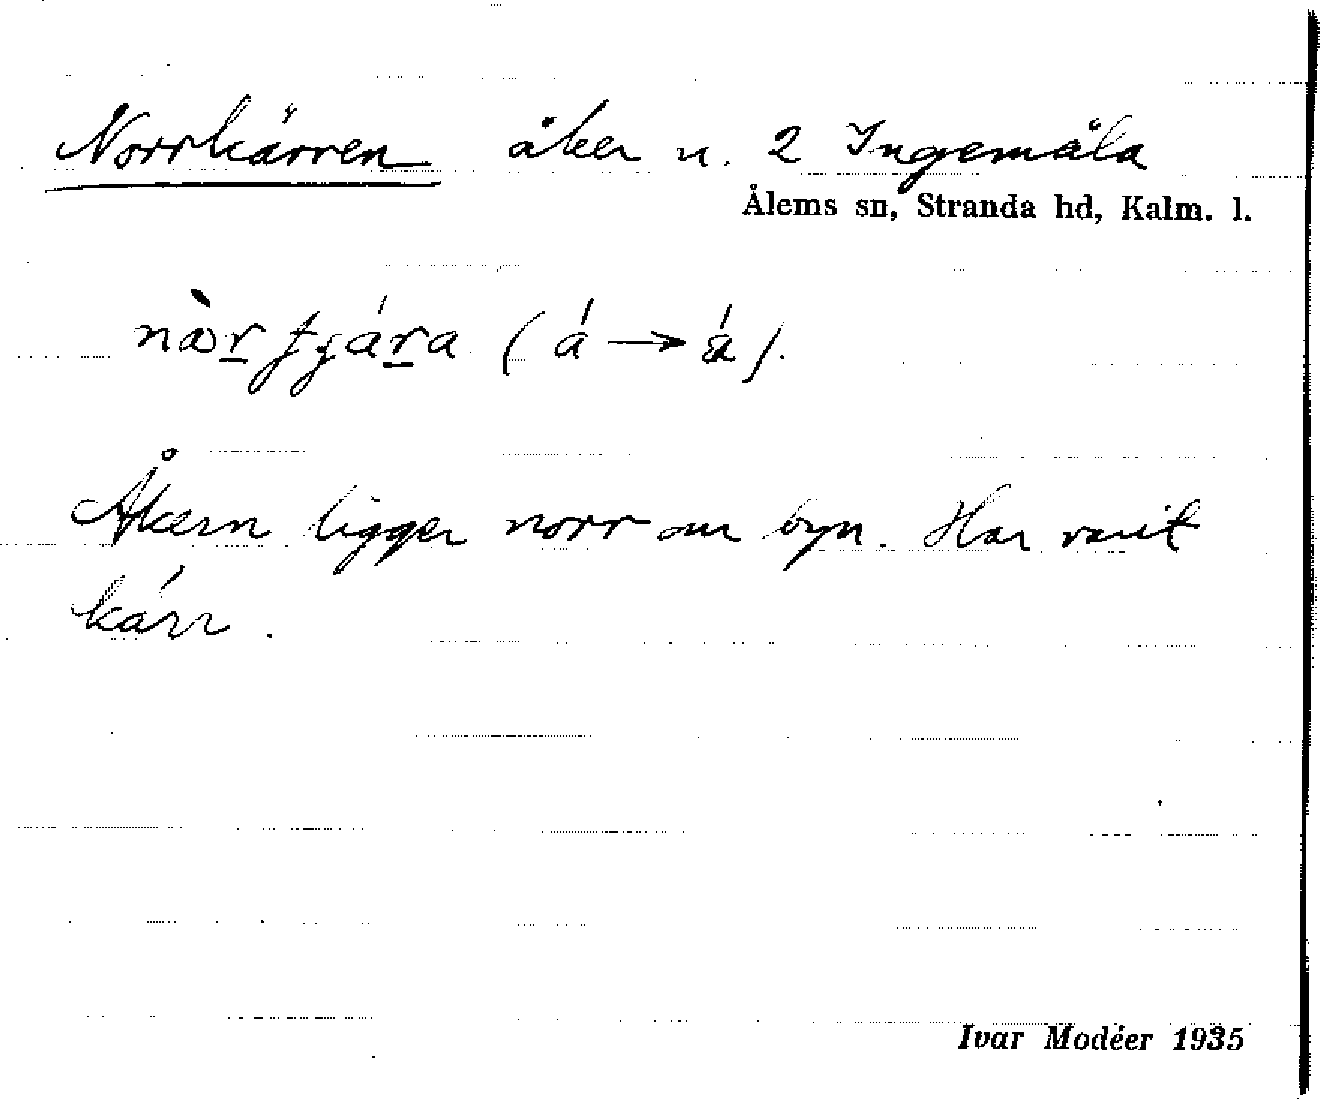 Norrkärren åker n. 2 Ingemåla
Ålems sn, Stranda hd, Kalm. l.
(á → á̈).
Åkern ligger norr om byn. Har varit
kärr.
Ivar Modéer 1935